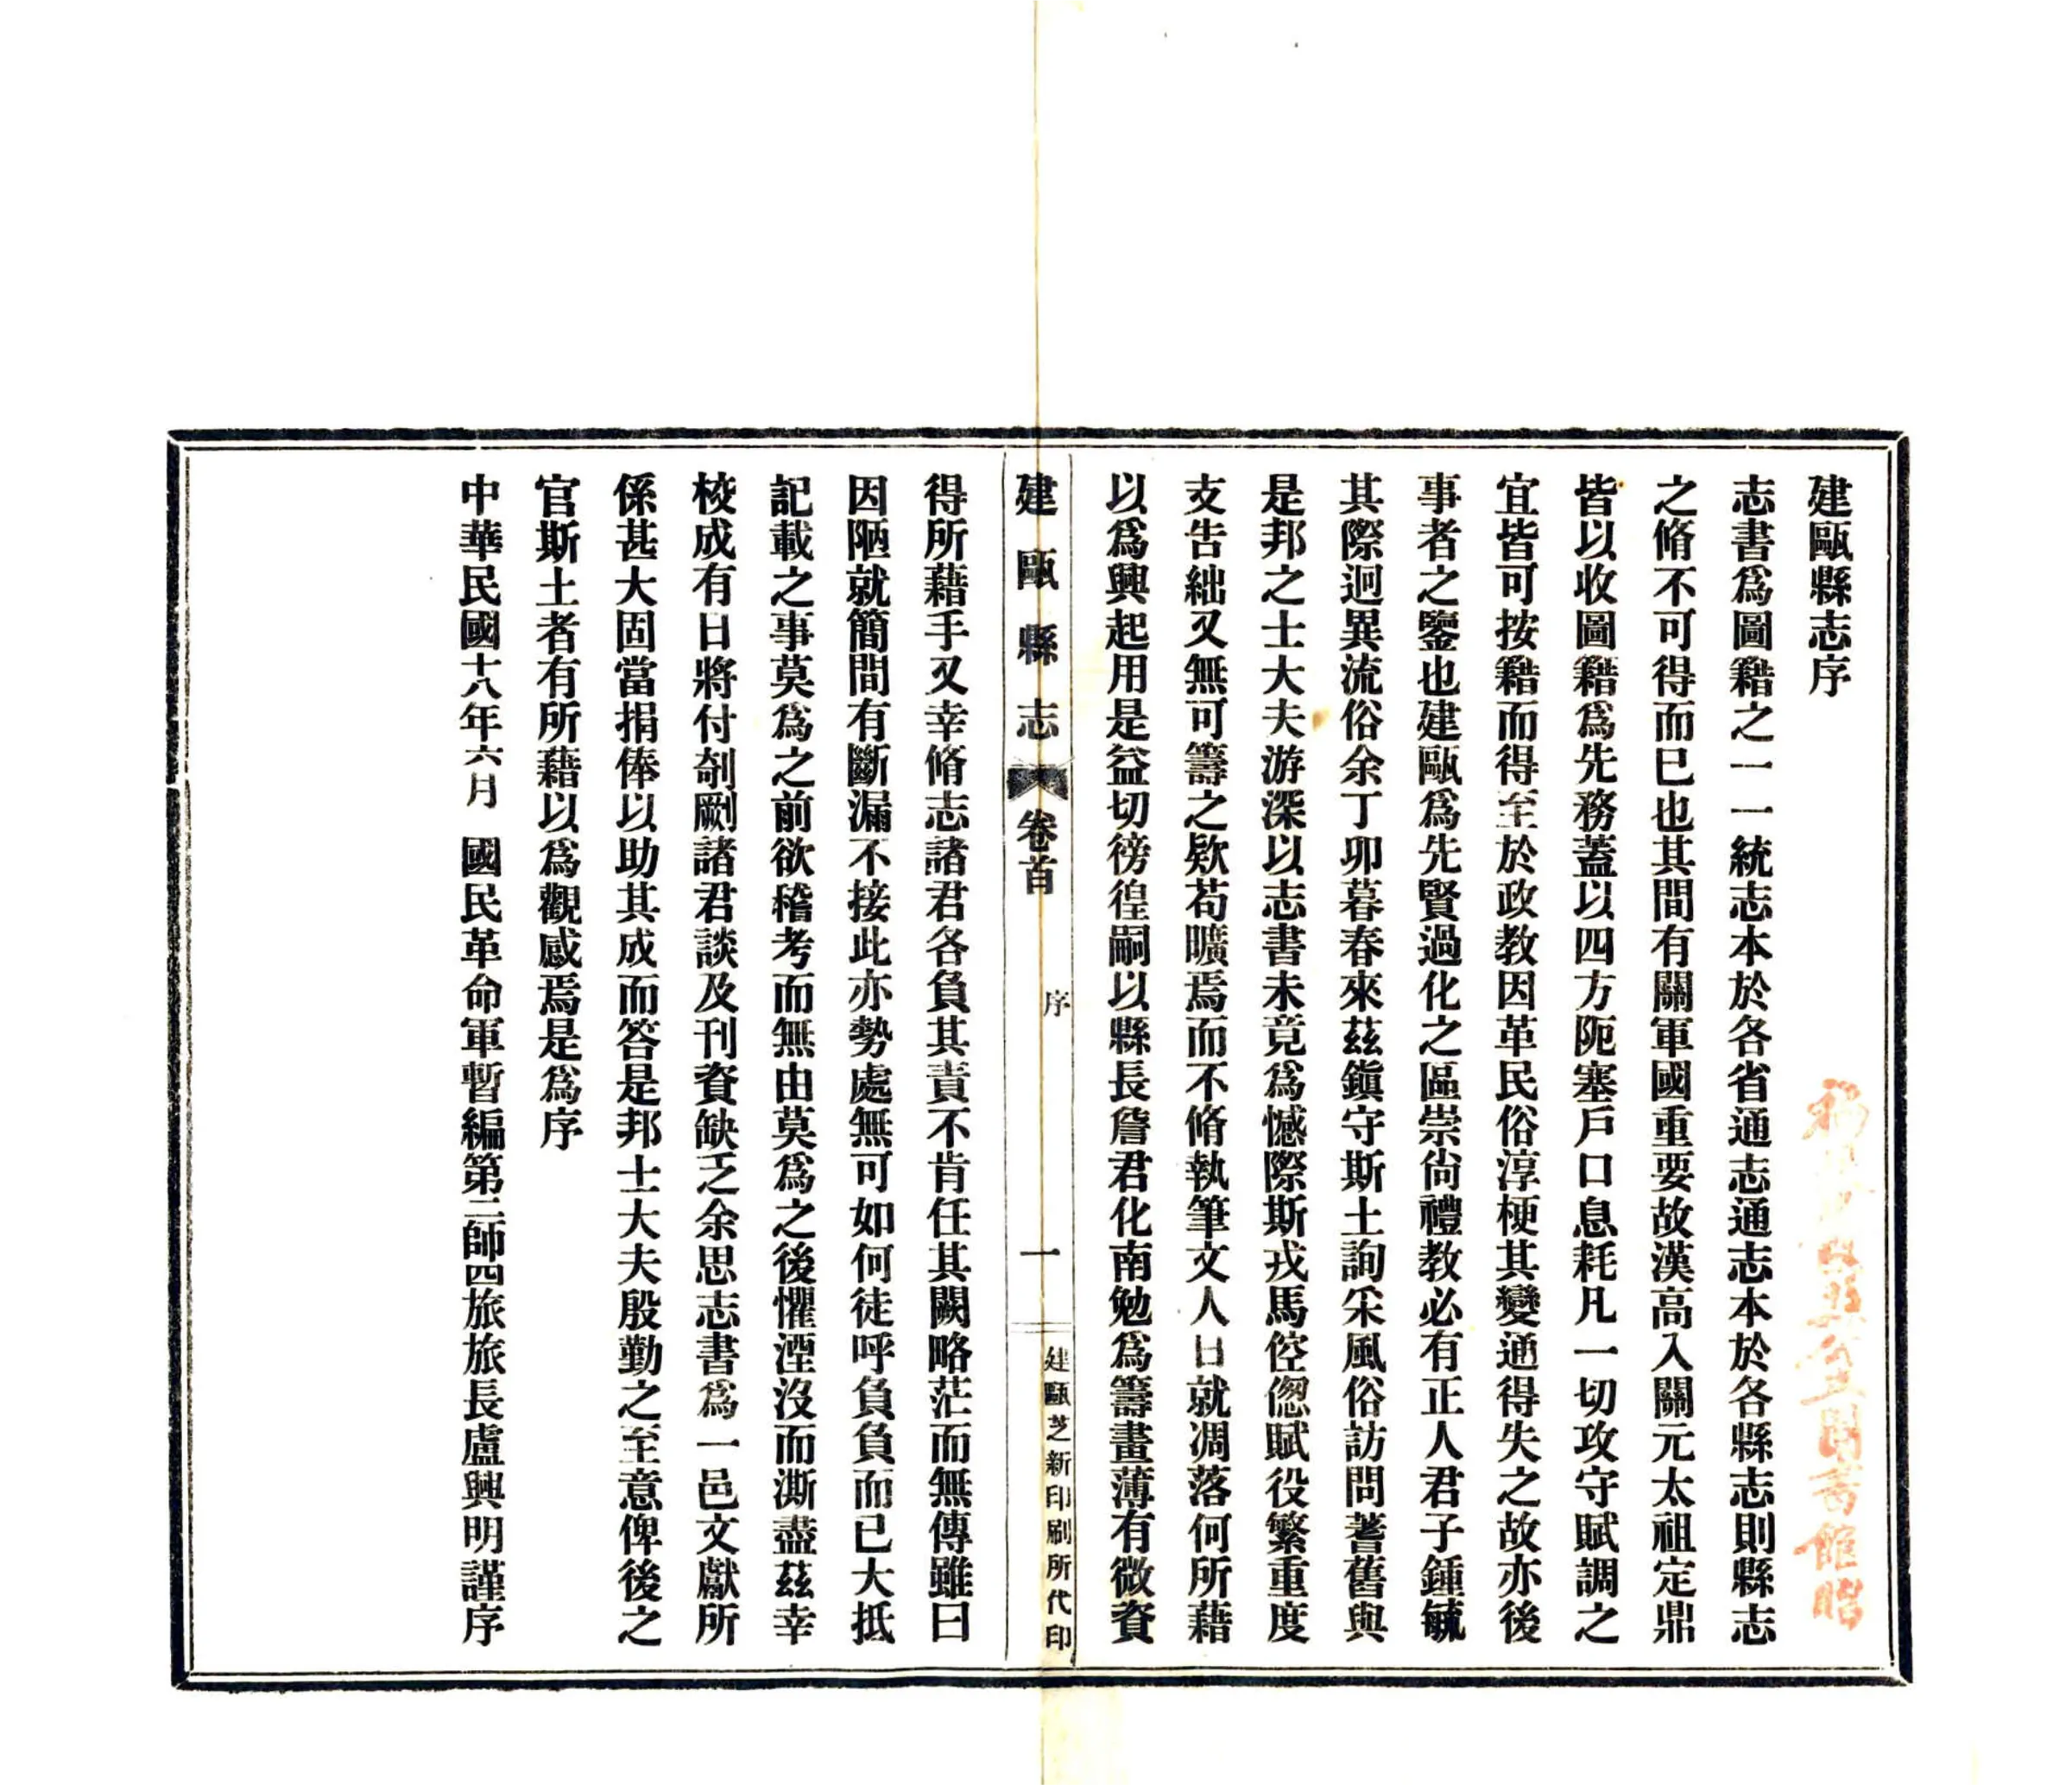 建甌縣志序
志書爲圖籍之一一統志本於各省通志通志本於各縣志則縣志
之脩不可得而已也其間有關軍國重要故漢高入關元太祖定鼎
皆以收圖籍爲先務蓋以四方阨塞戶口息耗凡一切攻守賦調之
宜皆可按籍而得至於政教因革民俗淳梗其變通得失之故亦後
事者之鑒也建甌爲先賢過化之區崇尙禮教必有正人君子鍾毓
其際迥異流俗余丁卯暮春來茲鎭守斯土詢采風俗訪問蓍舊與
是邦之士大夫游深以志書未竟爲憾際斯戎馬倥偬賦役繁重度
支告絀又無可籌之欵苟曠焉而不脩執筆文人日就凋落何所藉
以爲興起用是益切徬徨嗣以縣長詹君化南勉爲籌畫薄有微資
建甌縣志 卷首 序 一 建甌芝新印刷所代印
得所藉手又幸脩志諸君各負其責不肯任其闕略茫而無傳雖曰
因陋就簡間有斷漏不接此亦勢處無可如何徒呼負負而已大抵
記載之事莫爲之前欲稽考而無由莫爲之後懼湮沒而澌盡茲幸
校成有日將付剞劂諸君談及刊資缺乏余思志書爲一邑文獻所
係甚大固當捐俸以助其成而答是邦士大夫殷勤之至意俾後之
官斯土者有所藉以爲觀感焉是爲序
中華民國十八年六月 國民革命軍暫編第二師四旅旅長盧興明謹序